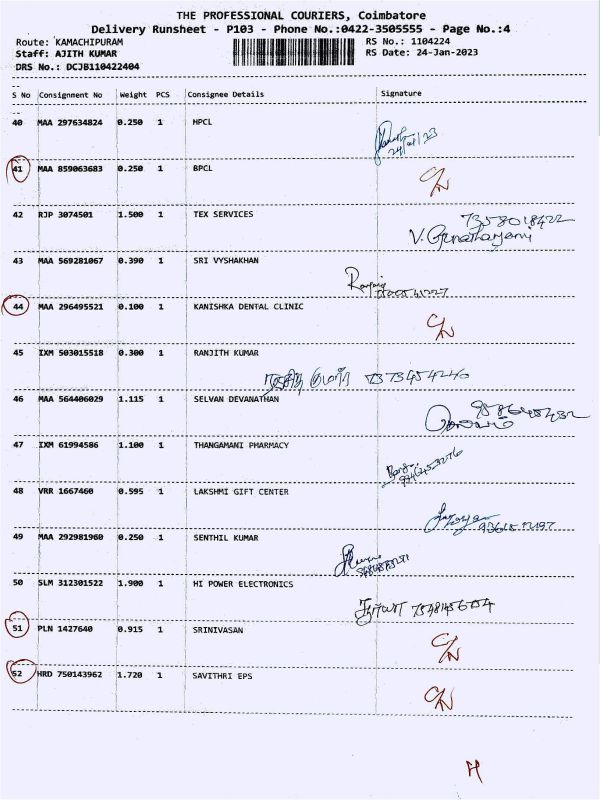 THE PROFESSIONAL COURIERS, Coimbatore
Delivery Runsheet - P103 - Phone No.:0422-3505555 - Page No.:4
Route: KAMACHIPURAM RS No.: 1104224
Staff: AJITH KUMAR RS Date: 24-Jan-2023
DRS No.: DCJB110422404
S No Consignment No Weight PCS Consignee Details Signature
40 MAA 297634824 0.250 1 HPCL
41 MAA 859063683 0.250 1 BPCL C/N
42 RJP 3074501 1.500 1 TEX SERVICES 7358018422
43 MAA 569281067 0.390 1 SRI VYSHAKHAN
44 MAA 296495521 0.100 1 KANISHKA DENTAL CLINIC C/N
45 IXM 503015518 0.300 1 RANJITH KUMAR
7373454240
46 MAA 564406029 1.115 1 SELVAN DEVANATHAN
47 IXM 61994586 1.100 1 THANGAMANI PHARMACY
48 VRR 1667460 0.595 1 LAKSHMI GIFT CENTER
49 MAA 292981960 0.250 1 SENTHIL KUMAR
50 SLM 312301522 1.900 1 HI POWER ELECTRONICS
51 PLN 1427640 0.915 1 SRINIVASAN C/N
52 HRD 750143962 1.720 1 SAVITHRI EPS C/N